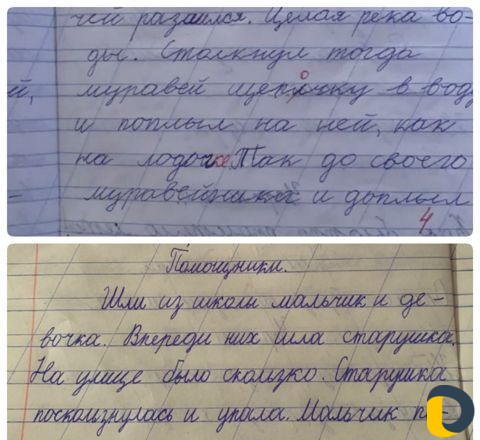 чей разлился. Целая река во-
ды. Столкнул тогда
й, муравей щепочку в воду
и поплыл на ней, как
на лодочке Так до своего
муравейника и доплыл
4
Помощники.
Шли из школы мальчик и де-
вочка. Впереди них шла старушка.
На улице было скользко. Старушка
поскользнулась и упала. Мальчик п